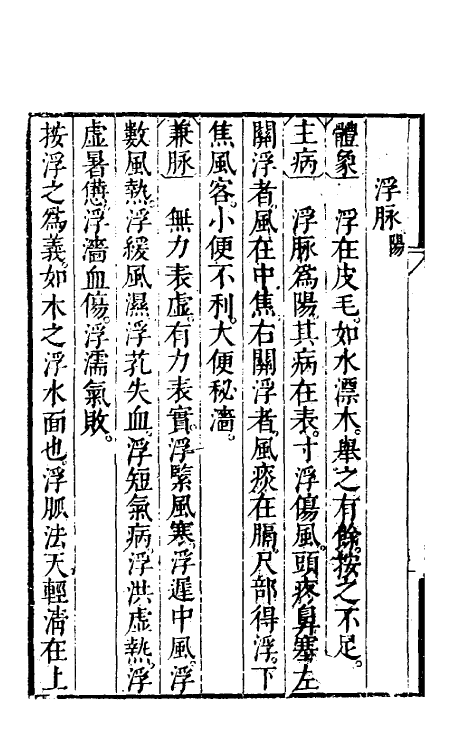 浮脉陽
體象 浮在皮毛。如水漂木。舉之有餘。按之不足。
主病 浮脉爲陽。其病在表。寸浮傷風。頭疼鼻塞。左
關浮者。風在中焦。右關浮者。風痰在膈。尺部得浮。下
焦風客。小便不利。大便秘濇。
兼脉 無力表虛。有力表實。浮緊風寒。浮遲中風。浮
數風熱。浮緩風濕。浮芤失血。浮短氣病。浮洪虛熱。浮
虛暑憊。浮濇血傷。浮濡氣敗。
按浮之爲義。如木之浮水面也。浮脈法天輕清在上